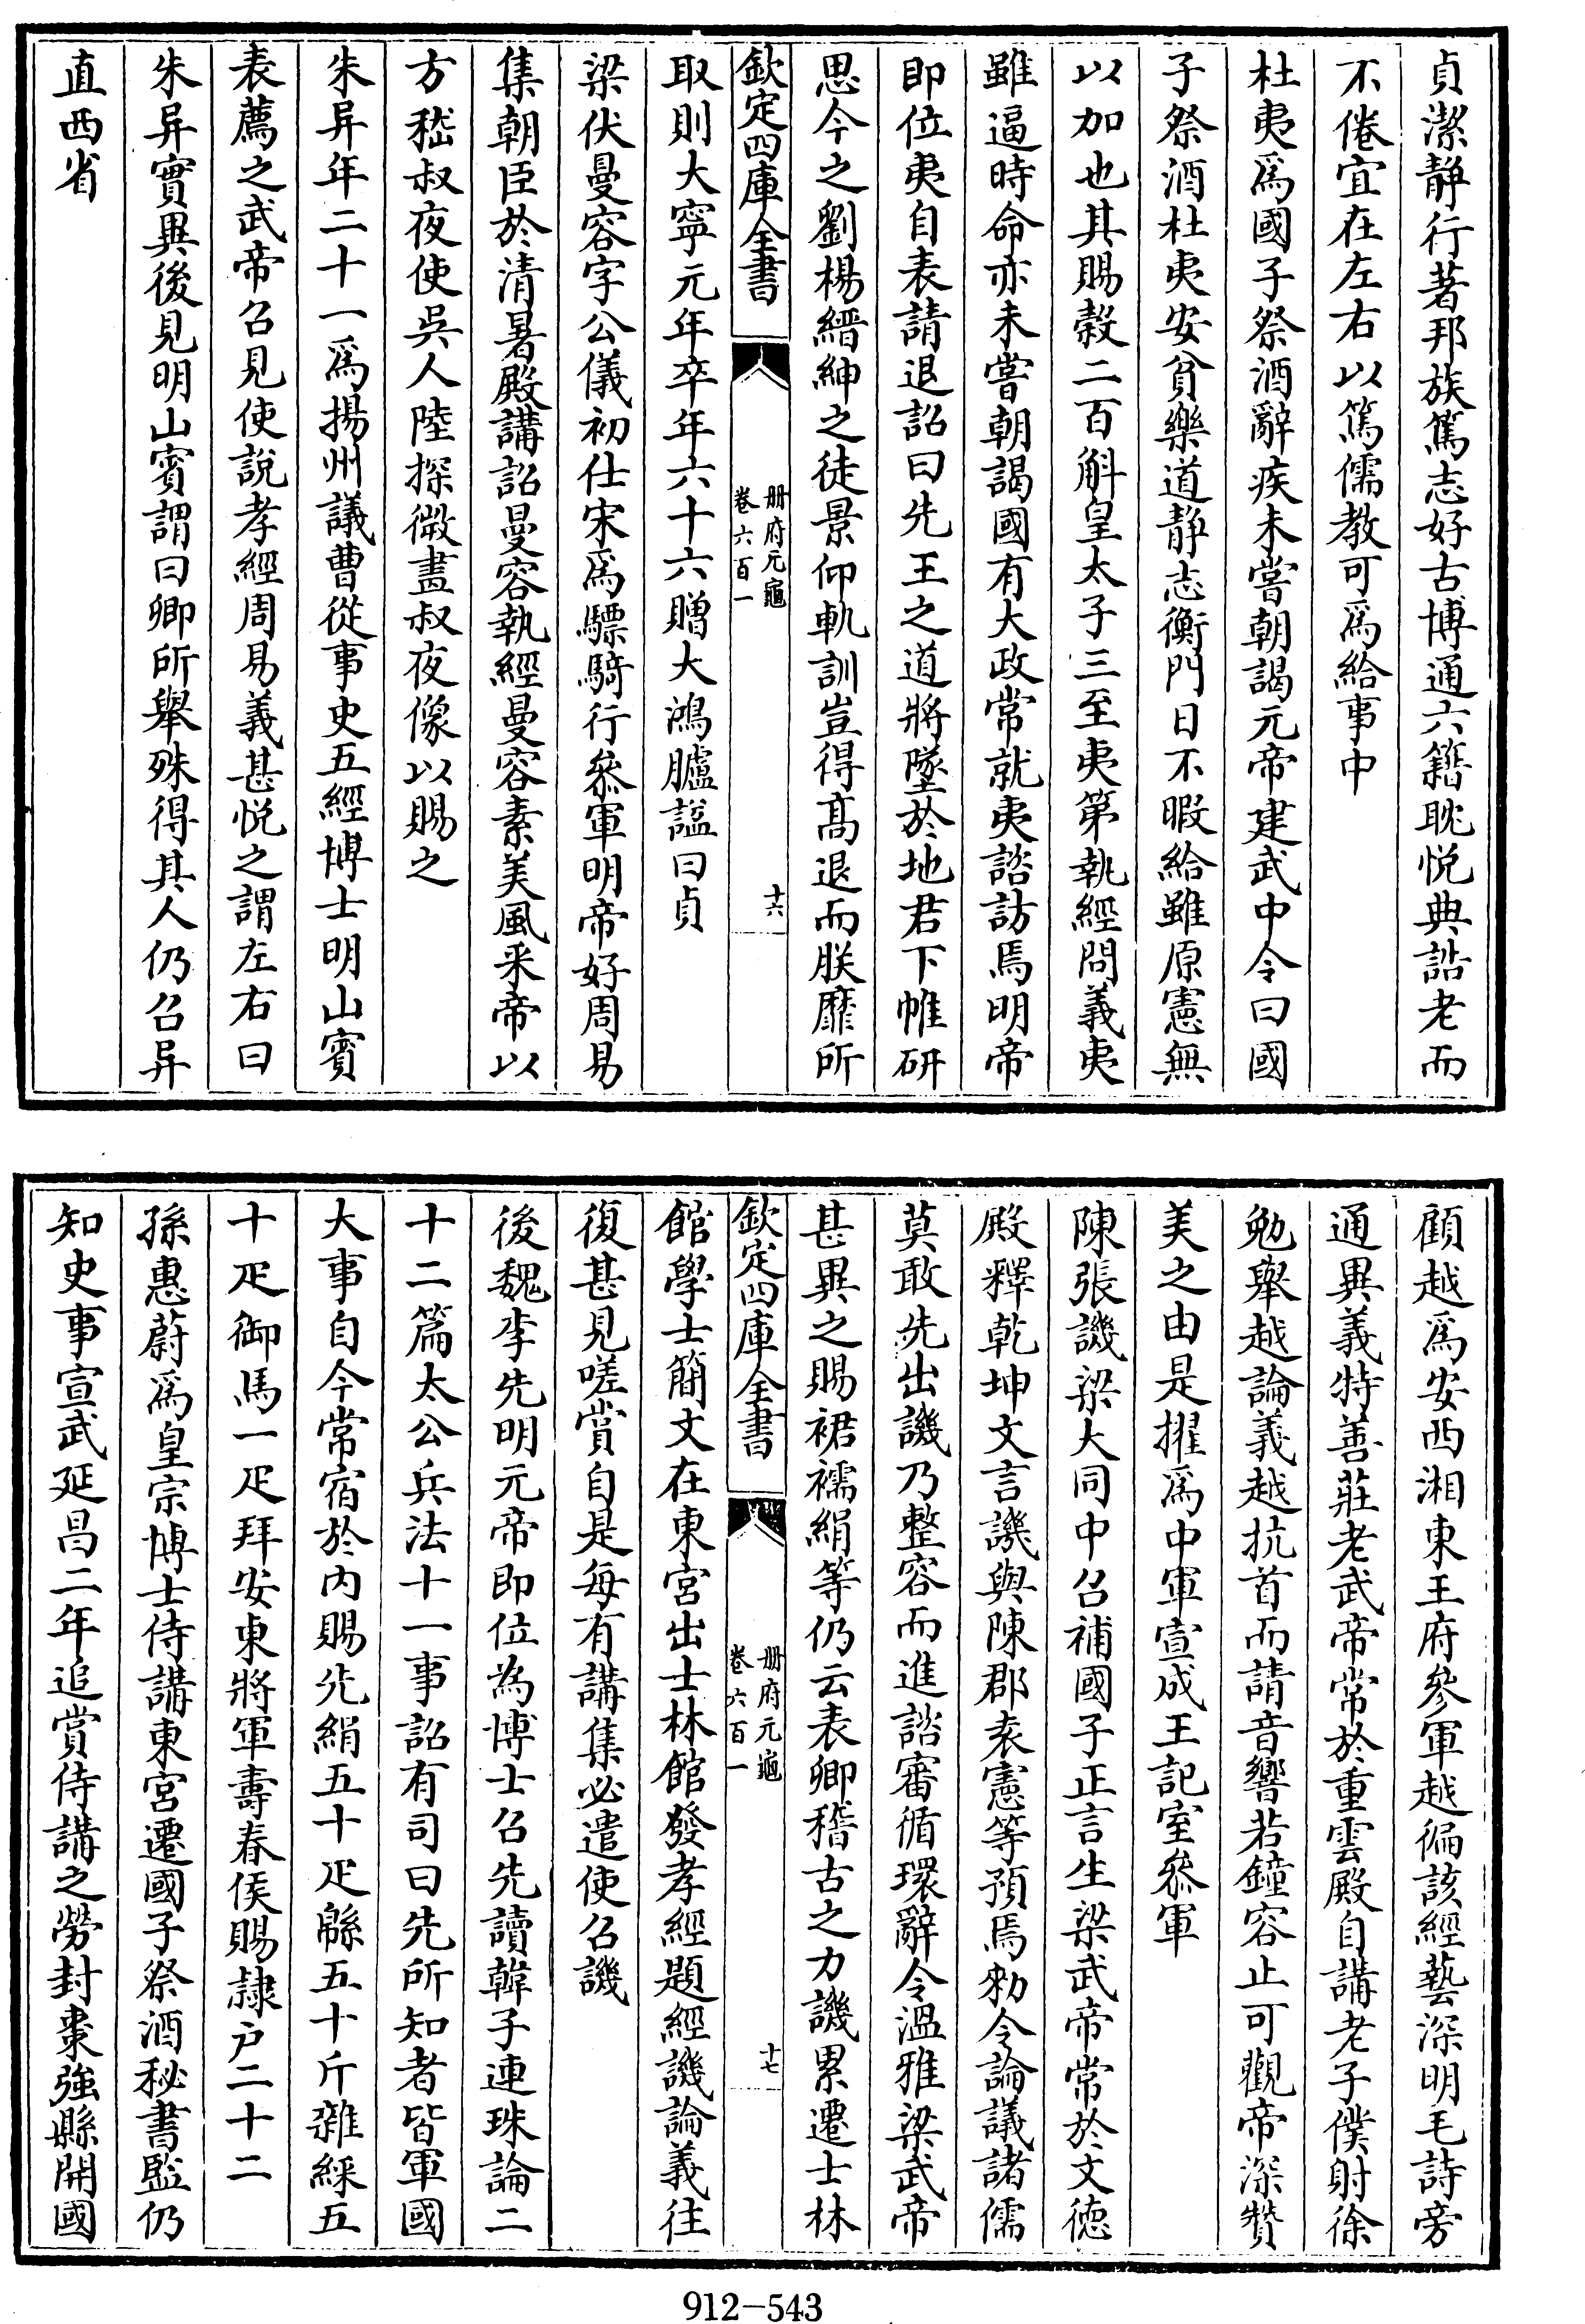 貞潔静行著邦族篤志好古博通六籍耽悦典誥老而
不倦宜在左右以篤儒教可爲給事中
杜夷爲國子祭酒辭疾未嘗朝謁元帝建武中令曰國
子祭酒杜夷安貧樂道静志衡門日不暇給雖原憲無
以加也其賜穀二百斛皇太子三至夷第執經問義夷
雖逼時命亦未嘗朝謁國有大政常就夷諮訪焉明帝
即位夷自表請退詔曰先王之道將墜於地君下帷研
思今之劉楊縉紳之徒景仰軌訓豈得髙退而朕靡所
欽定四庫全書
册府元龜
卷六百一
十六
取則大寧元年卒年六十六贈大鴻臚諡曰貞
梁伏曼容字公儀初仕宋爲驃騎行叅軍明帝好周易
集朝臣於清暑殿講詔曼容執經曼容素美風采帝以
方嵇叔夜使吳人陸探微畫叔夜像以賜之
朱异年二十一爲揚州議曹從事史五經博士明山賓
表薦之武帝召見使說孝經周易義甚悦之謂左右曰
朱异實異後見明山賓謂曰卿所舉殊得其人仍召异
直西省
顧越爲安西湘東王府參軍越徧該經藝深明毛詩旁
通異義特善莊老武帝常於重雲殿自講老子僕射徐
勉舉越論義越抗首而請音響若鐘容止可觀帝深贊
美之由是擢爲中軍宣成王記室叅軍
陳張譏梁大同中召補國子正言生梁武帝常於文徳
殿釋乾坤文言譏與陳郡袁憲等預焉勑令論議諸儒
莫敢先出譏乃整容而進諮審循環辭令溫雅梁武帝
甚異之賜裙襦絹等仍云表卿稽古之力譏累遷士林
欽定四庫全書
册府元龜
卷六百一
十七
館學士簡文在東宮出士林館發孝經題經譏論義往
復甚見嗟賞自是每有講集必遣使召譏
後魏李先明元帝即位為博士召先讀韓子連珠論二
十二篇太公兵法十一事詔有司曰先所知者皆軍國
大事自今常宿於内賜先絹五十疋緜五十斤雜綵五
十疋御馬一疋拜安東將軍壽春侯賜隷户二十二
孫惠蔚爲皇宗博士侍講東宮遷國子祭酒秘書監仍
知史事宣武延昌二年追賞侍講之勞封棗強縣開國
912-543